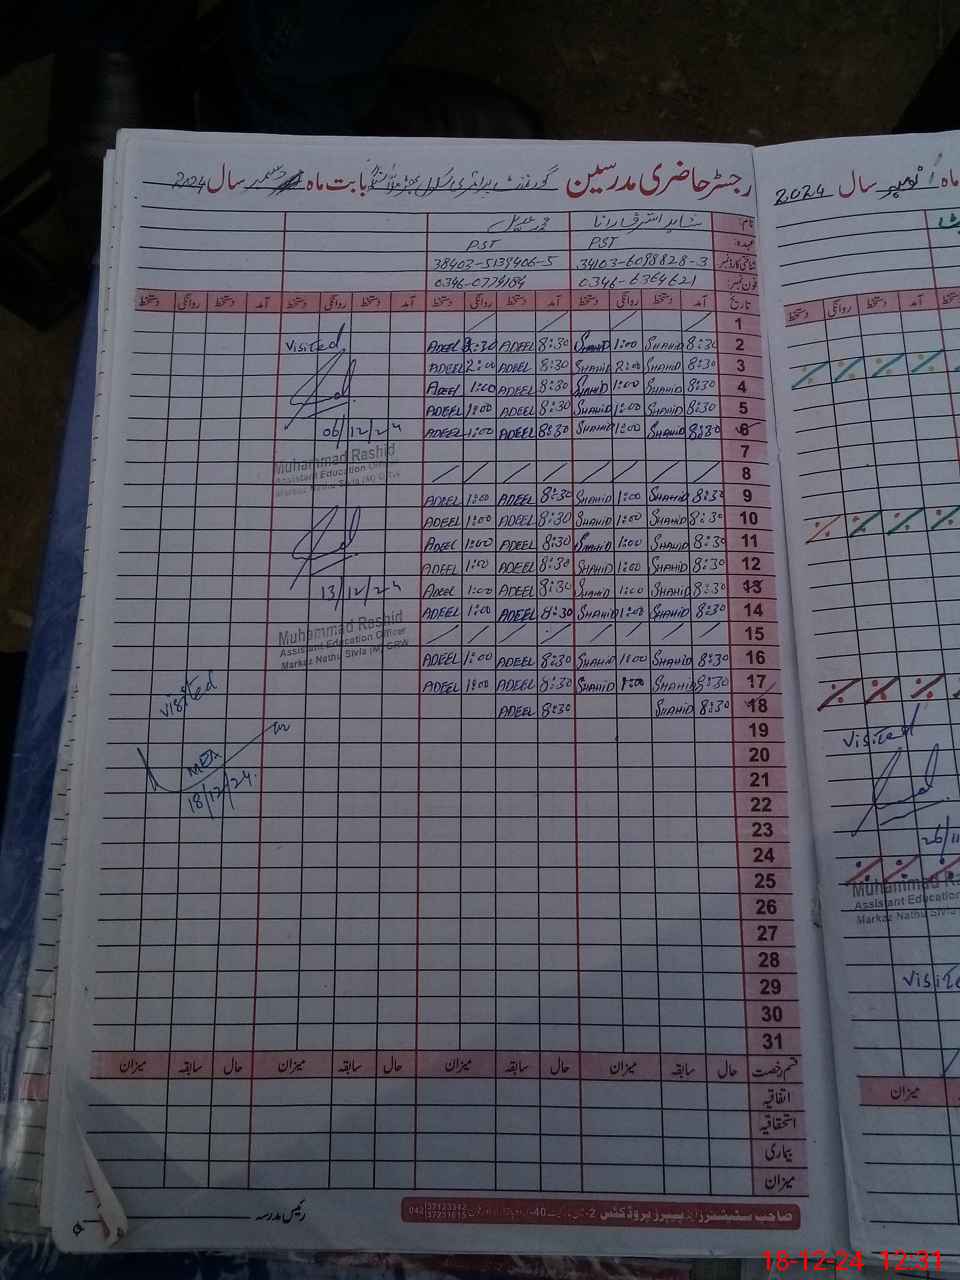 رجسٹر حاضری مدرسین گورنمنٹ پرائمری سکول بابت ماہ دسمبر سال 2024
نام:
عہدہ: PST PST
شناختی کارڈ نمبر 34103-6098828-3 38403-5139406-5
فون نمبر: 0346-6364621 0346-0779184
تاریخ آمد دستخط روانگی دستخط آمد دستخط روانگی دستخط آمد دستخط روانگی دستخط آمد دستخط روانگی دستخط
1
2 8:30 SHAHID 1:00 SHAHID 8:30 ADEEL ADEEL
3 8:30 SHAHID 2:00 SHAHID 8:30 ADEEL 2:00 ADEEL
4 8:30 SHAHID 1:00 SHAHID 8:30 ADEEL 1:00 ADEEL
5 8:30 SHAHID 1:00 SHAHID 8:30 ADEEL 1:00 ADEEL
6 8:30 SHAHID 1:00 SHAHID 8:30 ADEEL 1:00 ADEEL
7
8
9 8:30 SHAHID 1:00 SHAHID 8:30 ADEEL 1:00 ADEEL
10 8:30 SHAHID 1:00 SHAHID 8:30 ADEEL 1:00 ADEEL
11 8:30 SHAHID 1:00 SHAHID 8:30 ADEEL 1:00 ADEEL
12 8:30 SHAHID 1:00 SHAHID 8:30 ADEEL 1:00 ADEEL
13 8:30 SHAHID 1:00 SHAHID 8:30 ADEEL 1:00 ADEEL
14 8:30 SHAHID 1:00 SHAHID 8:30 ADEEL 1:00 ADEEL
15
16 8:30 SHAHID 1:00 SHAHID 8:30 ADEEL 1:00 ADEEL
17 8:30 SHAHID 1:00 SHAHID 8:30 ADEEL 1:00 ADEEL
18 8:30 SHAHID 8:30 ADEEL
19
20
21
22
23
24
25
26
27
28
29
30
31
visited
06/12/24
Muhammad Rashid
Assistant Education Officer
Markaz Nathu Sivia (M) GRW
13/12/24
Muhammad Rashid
Assistant Education Officer
Markaz Nathu Sivia (M) GRW
visited
MEA
18/12/24.
قسم رخصت حال سابقہ میزان حال سابقہ میزان حال سابقہ میزان حال سابقہ میزان
اتفاقیہ
استحقاقیہ
بیماری
میزان
رئیس مدرسہ
صاحب سٹیشنرز اینڈ پیپرز پروڈکٹس
042 37123342
37231615
ماہ اکتوبر سال 2024
روانگی دستخط
visited
26/11
Muhammad Ra
Assistant Education
Markaz Nathu Sivia
visited
میزان
18-12-24 12:31